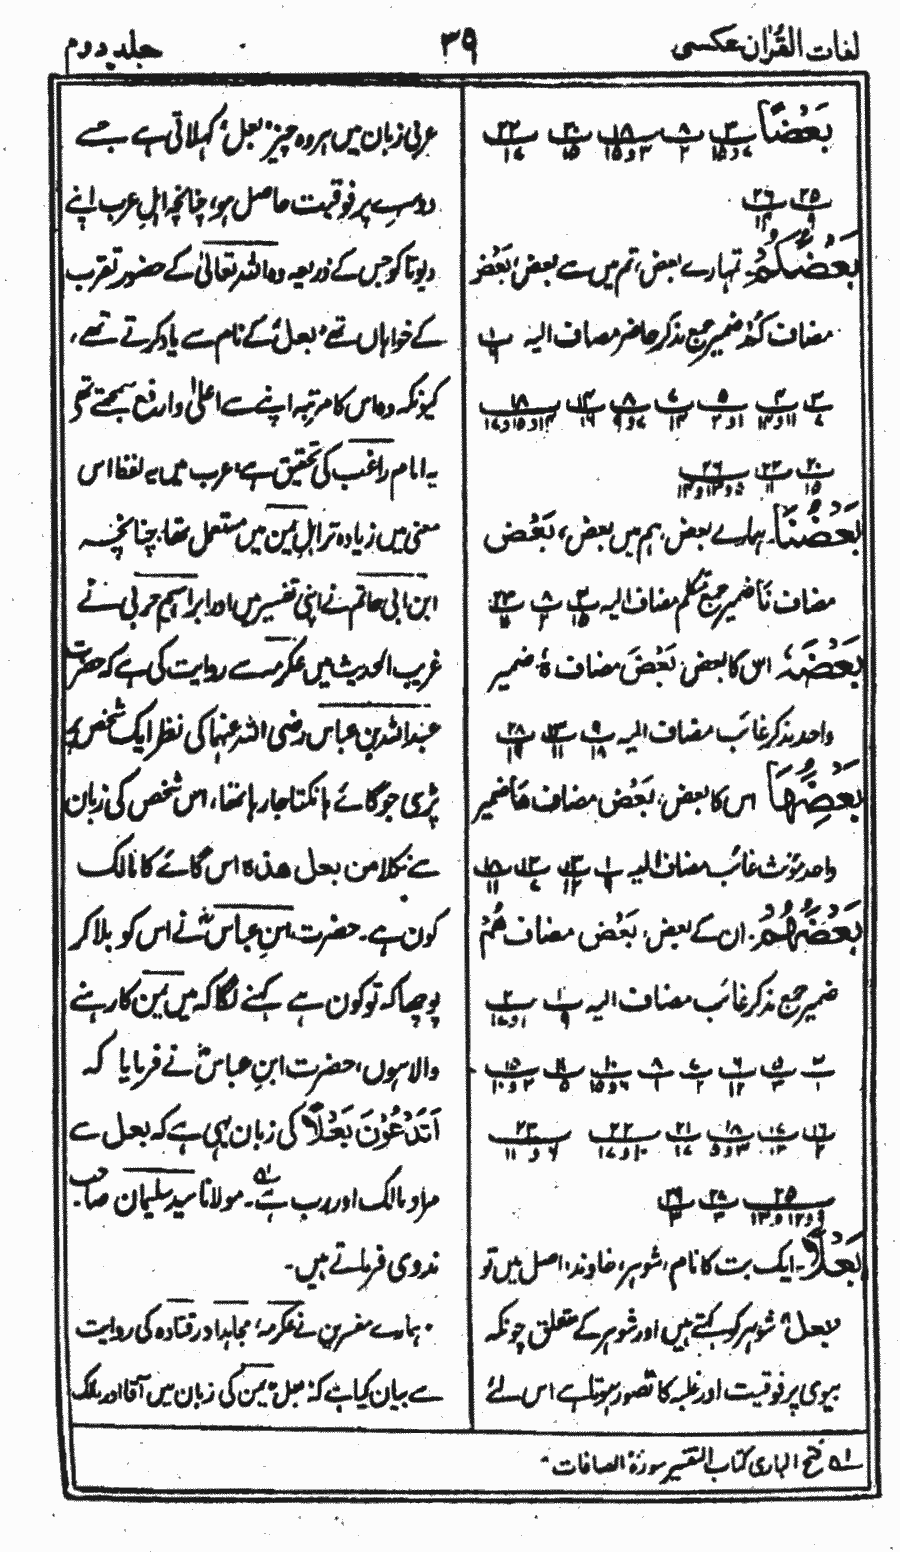 لغات القرآن عکسی
۳۹
جلد دوم
بَعْضًا ۳ ۸ ۱۸ ۲۰ ۲۲
۷ و ۱۵ ۲ ۳ و ۱۵ ۱۵ ۱۷
۲۵ ۲۶
۹ ۱۴
بَعْضُکُمْ۔ تمہارے بعض، تم میں سے بعض، بَعْض
مضاف کُمْ ضمیر جمع مذکر حاضر مضاف الیہ پ
۳ ۴ ۵ ۷ ۸ ۱۴ ۱۸
۷ ۱۱ و ۱۴ ۱ و ۲ ۱۴ ۷ و ۹ ۱۹ ۱۴ و ۱۵ و ۱۷
۲۰ ۲۲ ۲۶
۱۵ ۱۱ ۵ و ۱۳ و ۱۴
بَعْضُنَا۔ ہمارے بعض، ہم میں بعض، بَعْض
مضاف نَا ضمیر جمع متکلم مضاف الیہ ۳ ۸ ۲۳
۱۵ ۲ ۱۱
بَعْضَہٗ اس کا بعض، بَعْضَ مضاف ہٗ ضمیر
واحد مذکر غائب مضاف الیہ ۹ ۱۳ ۲۸
۱۸ ۱۱ ۱۹
بَعْضِهَا اس کا بعض، بَعْض مضاف هَا ضمیر
واحد مؤنث غائب مضاف الیہ ۱ ۱۳ ۱۳ ۱۸
۹ ۱۲ ۷ ۱۱
بَعْضُهُمْ۔ ان کے بعض، بَعْض مضاف هُمْ
ضمیر جمع مذکر غائب مضاف الیہ ۱ ۲
۹ ۱ و ۱۷
۳ ۵ ۶ ۷ ۸ ۱۰ ۱۱ ۱۵
۱ ۳ ۱۲ ۲ ۱ ۶ و ۱۵ ۵ ۲ و ۱۰
۱۶ ۱۷ ۱۸ ۲۱ ۲۲ ۲۳
۲ ۱۳ ۳ و ۵ ۱۷ ۱۰ و ۱۷ ۶ و ۱۱
۲۵ ۲۸ ۲۹
۹ و ۱۲ و ۱۳ ۳ ۳
بَعْلًا۔ ایک بت کا نام، شوہر، خاوند، اصل میں تو
"بعل" شوہر کو کہتے ہیں اور شوہر کے متعلق چونکہ
بیوی پر فوقیت اور غلبہ کا تصور ہوتا ہے اس لئے
عربی زبان میں ہر وہ چیز "بعل" کہلاتی ہے جسے
دوسرے پر فوقیت حاصل ہو، چنانچہ اہل عرب اپنے
دیوتا کو جس کے ذریعہ وہ اللہ تعالیٰ کے حضور تقرب
کے خواہاں تھے "بعل" کے نام سے یاد کرتے تھے،
کیونکہ وہ اس کا مرتبہ اپنے سے اعلیٰ وارفع سمجھتے تھے
یہ امام راغب کی تحقیق ہے، عرب میں یہ لفظ اس
معنی میں زیادہ تر اہل یمن میں مستعمل تھا، چنانچہ
ابن ابی حاتم نے اپنی تفسیر میں اور ابراہیم حربی نے
غریب الحدیث میں عکرمہ سے روایت کی ہے کہ حضرت
عبداللہ بن عباس رضی اللہ عنہما کی نظر ایک شخص پر
پڑی جو گائے ہانکتا جا رہا تھا، اس شخص کی زبان
سے نکلا من بعل ھذہ اس گائے کا مالک
کون ہے۔ حضرت ابن عباسؓ نے اس کو بلا کر
پوچھا کہ تو کون ہے کہنے لگا کہ میں یمن کا رہنے
والا ہوں، حضرت ابن عباسؓ نے فرمایا کہ
اَتَدْعُوْنَ بَعْلًا کی زبان یہی ہے کہ بعل سے
مراد مالک اور رب ہے۔ ۱ مولانا سید سلیمان صاحب
ندوی فرماتے ہیں۔
"ہمارے مفسرین نے عکرمہ، مجاہد اور قتادہ کی روایت
سے بیان کیا ہے کہ "بعل" یمن کی زبان میں آقا اور مالک
۱ فتح الباری کتاب التفسیر سورۃ الصافات